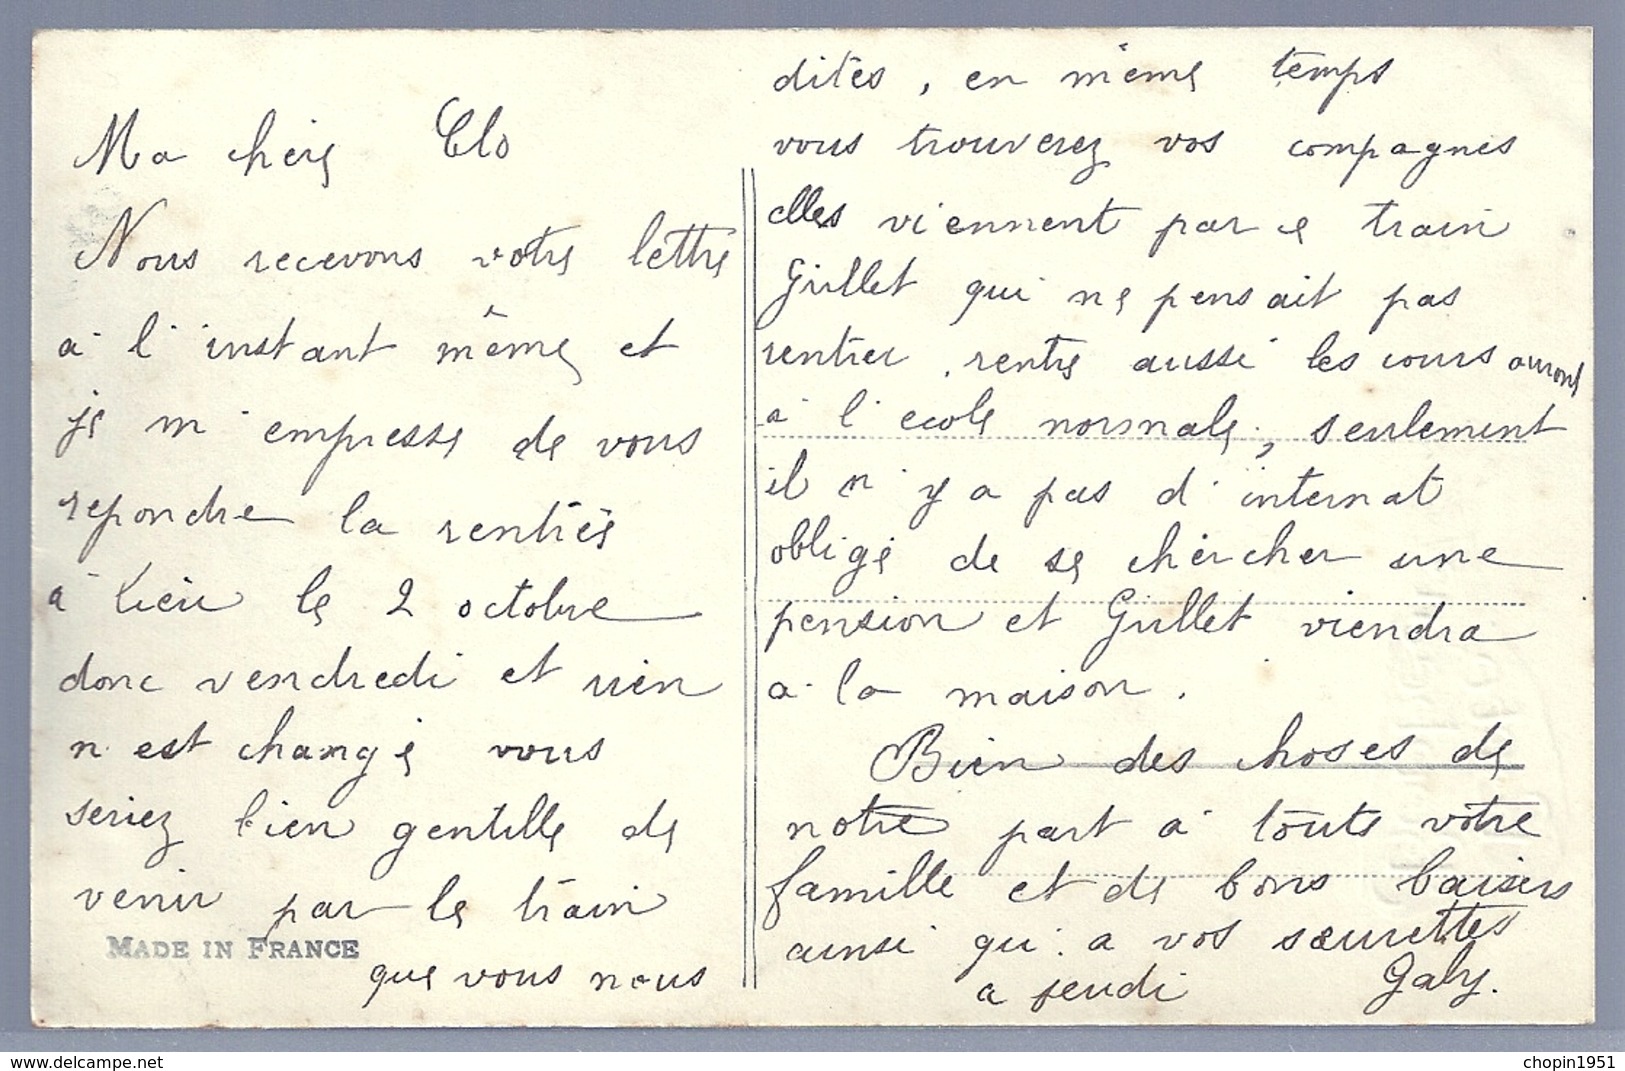 Ma chere Clo
Nous recevons votre lettre
a l'instant même et
je m'empresse de vous
repondre la rentrée
a lieu le 2 octobre
donc vendredi et rien
n'est changé vous
seriez bien gentille de
venir par le train
MADE IN FRANCE
que vous nous
dites, en même temps
vous trouverez vos compagnes
elles viennent par ce train
Grillet qui ne pensait pas
rentrer, rentre aussi les cours auront
à l'ecole normale, seulement
il n'y a pas d'internat
obligé de se chercher une
pension et Grillet viendra
a la maison.
Bien des choses de
notre part a toute votre
famille et de bons baisers
ainsi qu'a vos sœurettes
a jeudi Gaby.
delcampe.net
chopin1951